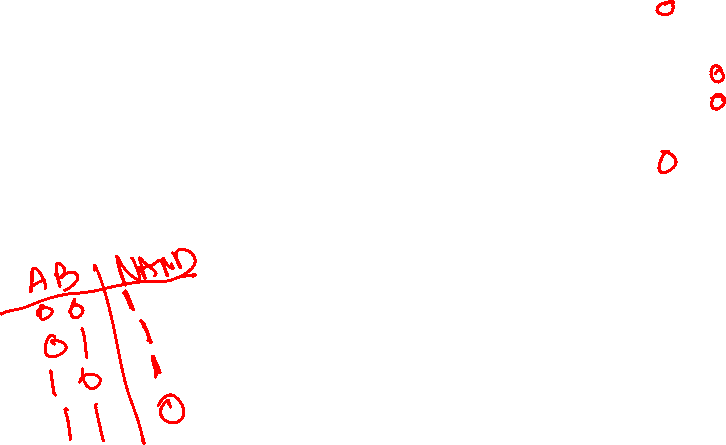 0
0
0
0
A B NAND
0 0 1
0 1 1
1 0 1
1 1 0